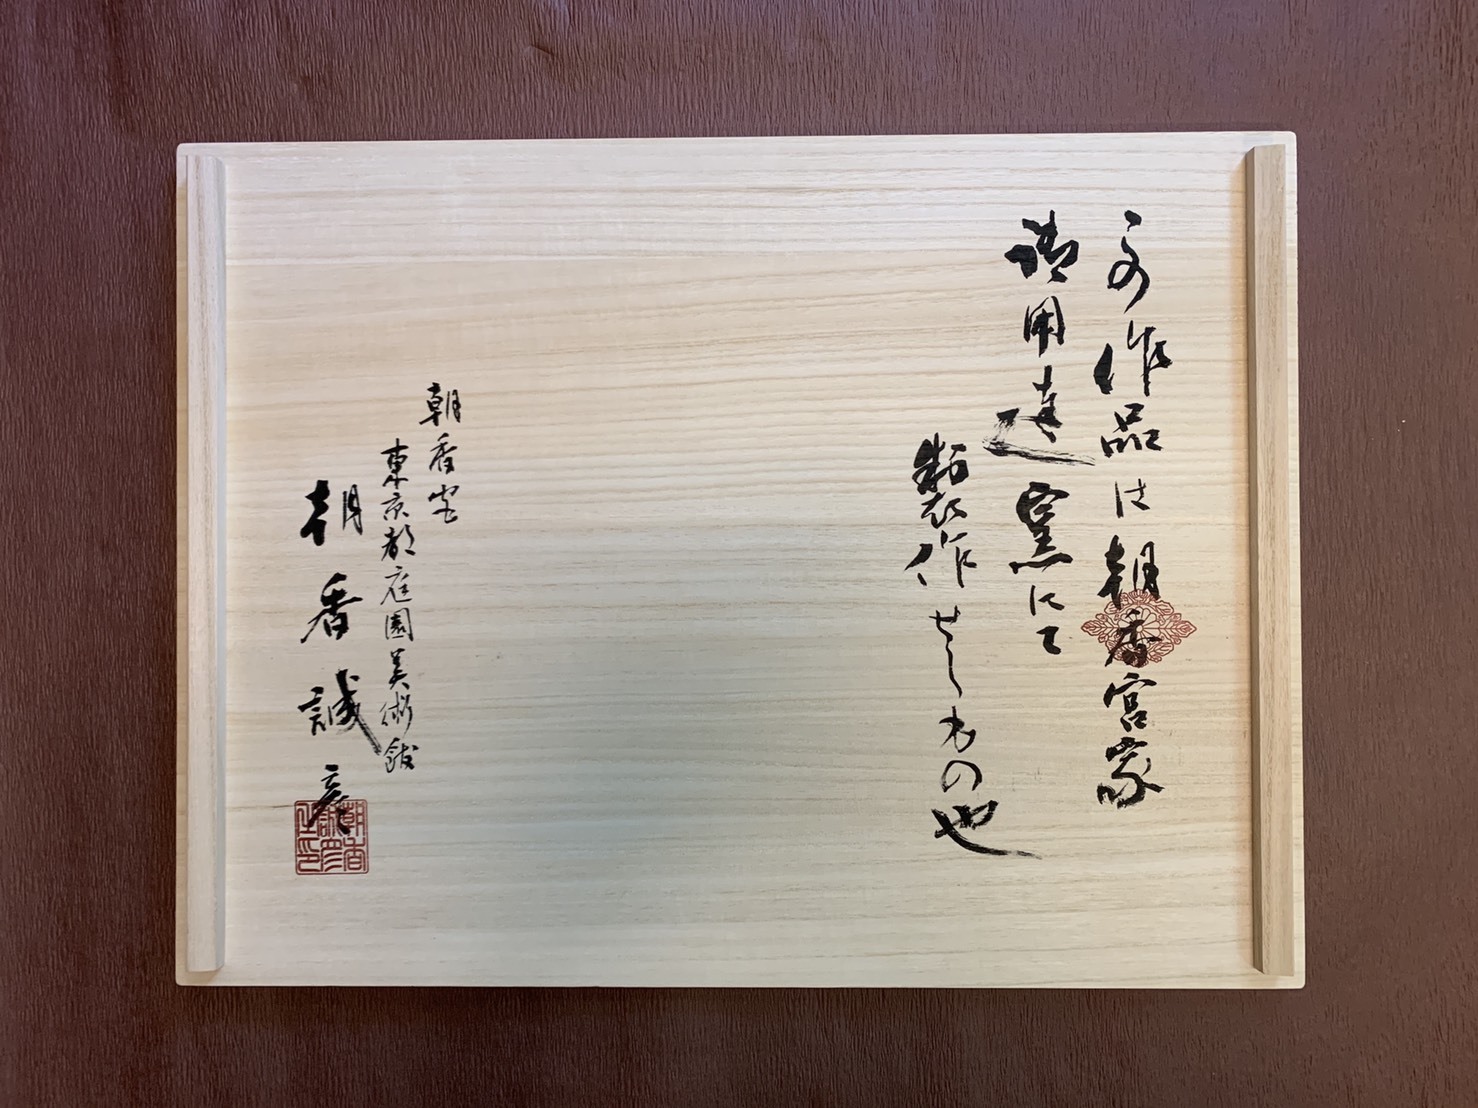 この作品は朝香宮家
御用達窯にて
製作せしもの也
朝香宮
東京都庭園美術館
朝香誠彦